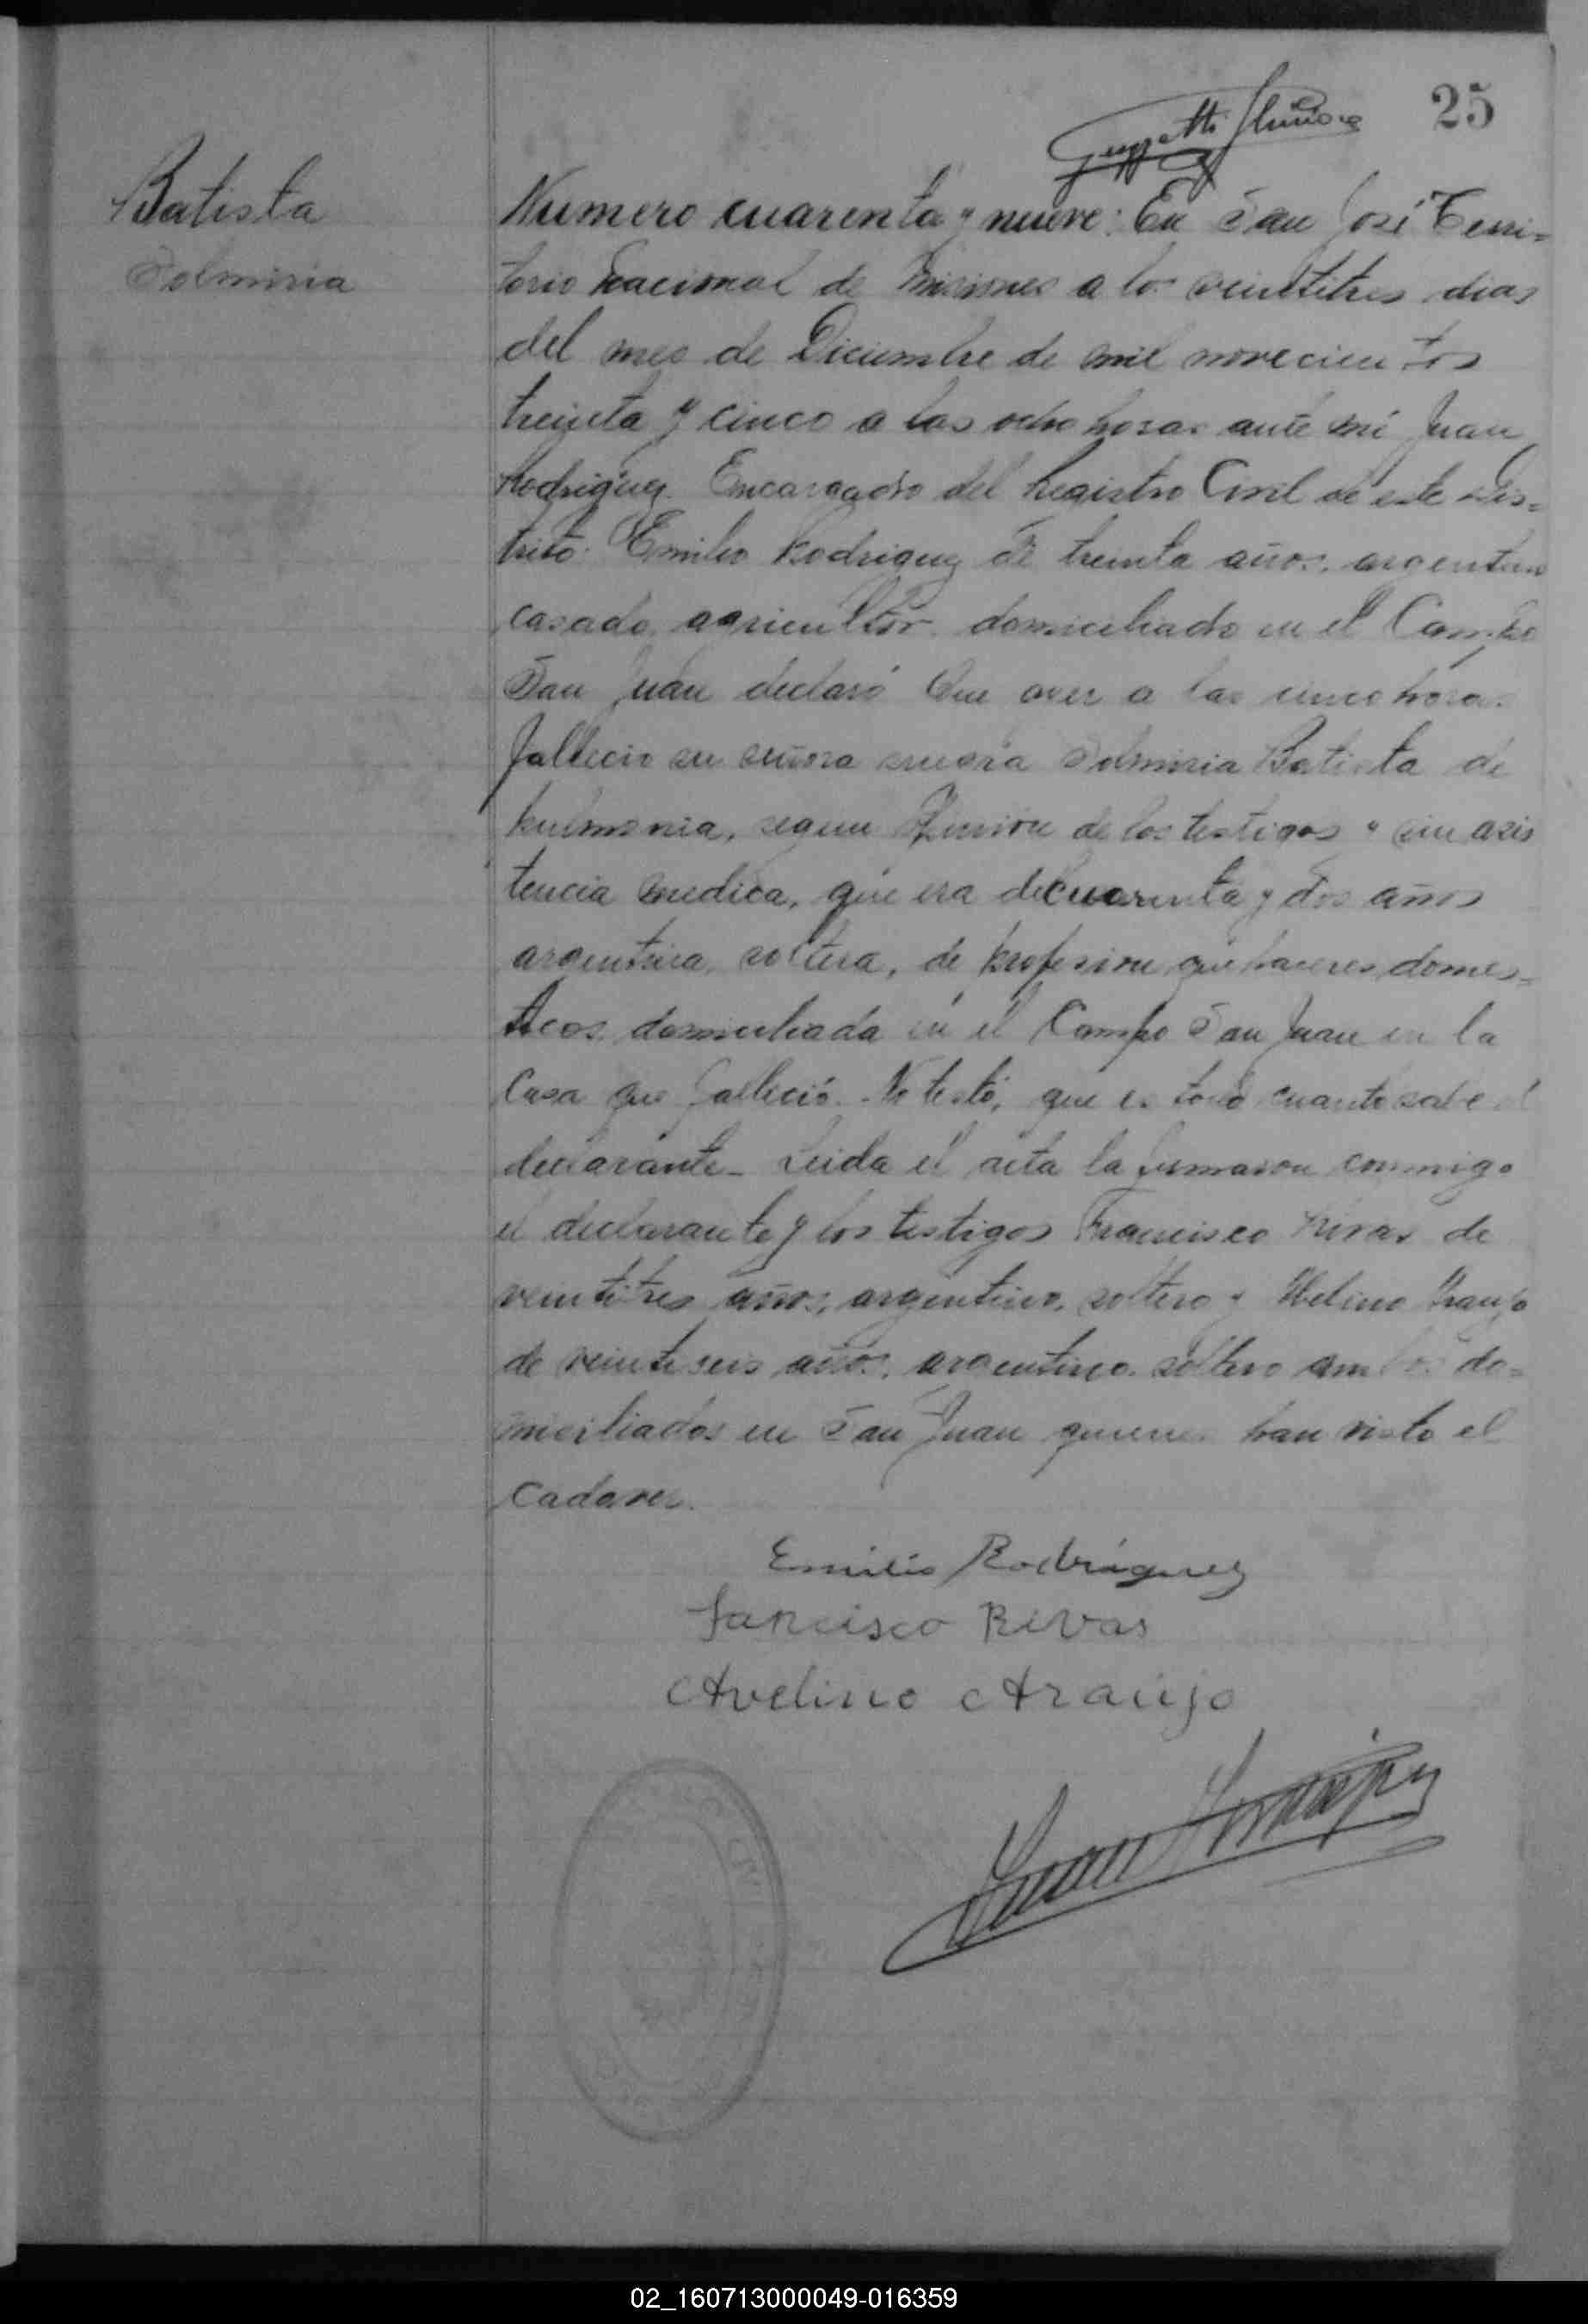 25
Batista
Solmiria
Numero cuarenta y nueve: En San José Terri=
torio Nacional de Misiones a los veintitres dias
del mes de Diciembre de mil novecientos
treinta y cinco a las ocho horas ante mi Juan
Rodriguez Encargado del Registro Civil de este Dis=
trito: Emilio Rodriguez de treinta años, argentino
casado, agricultor domiciliado en el Campo
San Juan declaró Que ayer a las cinco horas
fallecio su señora suegra Solmiria Batista de
pulmonia, segun opinion de los testigos y sin asis
tencia medica, que era de cuarenta y dos años
argentina, soltera, de profesion quehaceres domes=
ticos, domiciliada en el Campo San Juan en la
Casa que falleció. No testó, que es todo cuanto sabe el
declarante_ Leida el acta la firmaron conmigo
el declarante y los testigos Francisco Rivas de
veintitres años, argentino, soltero y Abelino Araujo
de veinteseis años, argentino soltero ambos do=
miciliados en San Juan quienes han visto el
Cadaver.
Emilio Rodriguez
Francisco Rivas
Avelino Araujo
02_160713000049-016359